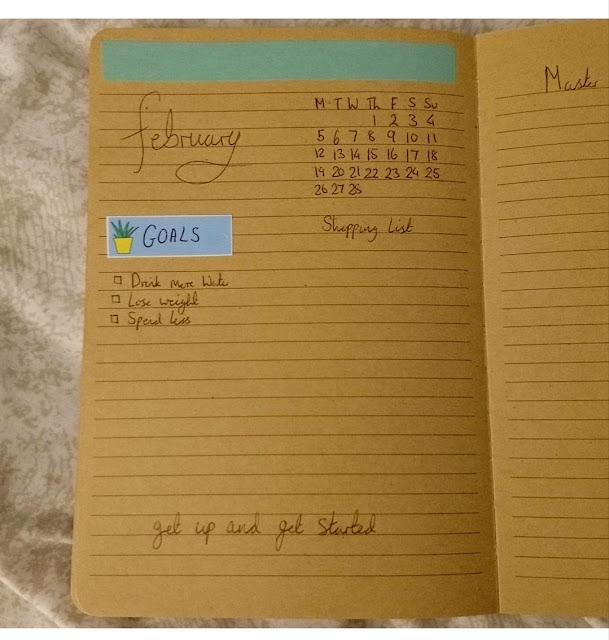 February
M T W Th F S Su
1 2 3 4
5 6 7 8 9 10 11
12 13 14 15 16 17 18
19 20 21 22 23 24 25
26 27 28
GOALS
Shopping List
Drink more Wate
Lose weight
Spend less
get up and get started
Master